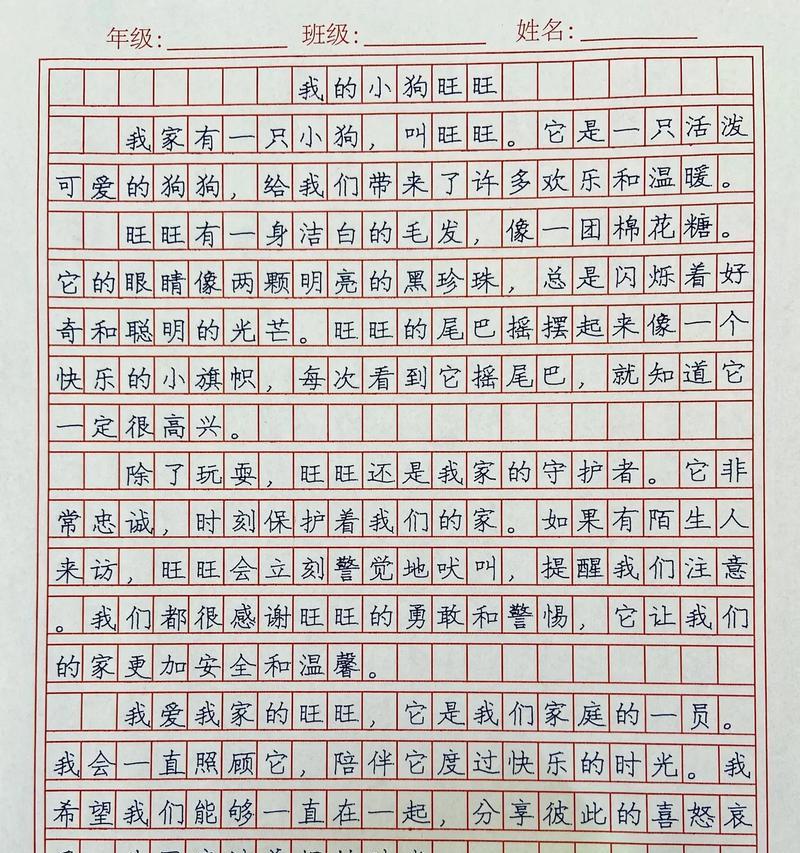 年级: 班级: 姓名:
我的小狗旺旺
我家有一只小狗，叫旺旺。它是一只活泼
可爱的狗狗，给我们带来了许多欢乐和温暖。
旺旺有一身洁白的毛发，像一团棉花糖。
它的眼睛像两颗明亮的黑珍珠，总是闪烁着好
奇和聪明的光芒。旺旺的尾巴摇摆起来像一个
快乐的小旗帜，每次看到它摇尾巴，就知道它
一定很高兴。
除了玩耍，旺旺还是我家的守护者。它非
常忠诚，时刻保护着我们的家。如果有陌生人
来访，旺旺会立刻警觉地吠叫，提醒我们注意
。我们都很感谢旺旺的勇敢和警惕，它让我们
的家更加安全和温馨。
我爱我家的旺旺，它是我们家庭的一员。
我会一直照顾它，陪伴它度过快乐的时光。我
希望我们能够一直在一起，分享彼此的喜怒哀